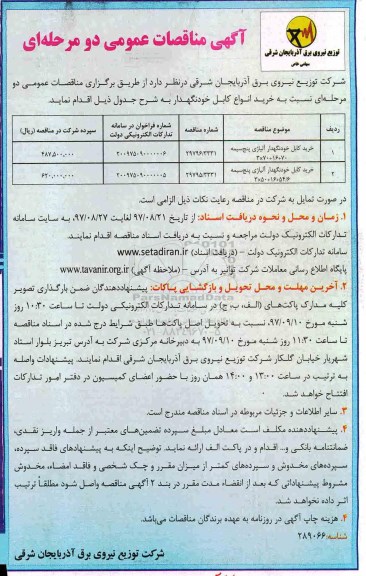 آگهی مناقصات عمومی دو مرحله‌ای
توزیع نیروی برق آذربایجان شرقی
سهامی خاص
شرکت توزیع نیروی برق آذربایجان شرقی درنظر دارد از طریق برگزاری مناقصات عمومی دو
مرحله‌ای نسبت به خرید انواع کابل خودنگهدار به شرح جدول ذیل اقدام نماید.
ردیف موضوع مناقصه شماره مناقصه شماره فراخوان در سامانه تدارکات الکترونیکی دولت سپرده شرکت در مناقصه (ریال)
۱ خرید کابل خودنگهدار آلیاژی پنج‌سیمه ۲۹۷۹۶/۳۳۳۱ ۲۰۰۹۷۵۰۹۰۰۰۰۰۰۶ ۴۸۷,۵۰۰,۰۰۰
۲ خرید کابل خودنگهدار آلیاژی پنج‌سیمه ۲۹۷۹۵/۳۳۳۱ ۲۰۰۹۷۵۰۹۰۰۰۰۰۰۵ ۶۲۰,۰۰۰,۰۰۰
در صورت تمایل به شرکت در مناقصه رعایت نکات ذیل الزامی است.
۱. زمان و محل و نحوه دریافت اسناد: از تاریخ ۹۷/۰۸/۲۱ لغایت ۹۷/۰۸/۲۷، به سایت سامانه
تدارکات الکترونیک دولت مراجعه و نسبت به دریافت اسناد مناقصه اقدام نمایند.
سامانه تدارکات الکترونیک دولت – (دریافت اسناد) www.setadiran.ir
پایگاه اطلاع رسانی معاملات شرکت توانیر به آدرس – (ملاحظه آگهی) www.tavanir.org.ir
۲. آخرین مهلت و محل تحویل و بازگشایی پاکات: پیشنهاددهندگان ضمن بارگذاری تصویر
کلیه مدارک پاکت‌های (الف، ب، ج) در سامانه تدارکات الکترونیکی دولت تا ساعت ۱۰:۳۰ روز
شنبه مورخ ۹۷/۰۹/۱۰، نسبت به تحویل اصل پاکت‌ها طبق شرایط درج شده در اسناد مناقصه
تا ساعت ۱۱:۳۰ روز شنبه مورخ ۹۷/۰۹/۱۰ به دبیرخانه مرکزی شرکت به آدرس تبریز بلوار استاد
شهریار خیابان گلکار شرکت توزیع نیروی برق آذربایجان شرقی اقدام نمایند. پیشنهادات واصله
به ترتیب در ساعت ۱۳:۰۰ و ۱۴:۰۰ همان روز با حضور اعضای کمیسیون در دفتر امور تدارکات
افتتاح خواهد شد.
۳. سایر اطلاعات و جزئیات مربوطه در اسناد مناقصه مندرج است.
۴. پیشنهاددهنده مکلف است معادل مبلغ سپرده تضمین‌های معتبر از جمله واریز نقدی،
ضمانتنامه بانکی و.. اقدام و در پاکت الف ارائه نماید. توضیح اینکه به پیشنهادهای فاقد سپرده،
سپرده‌های مخدوش و سپرده‌های کمتر از میزان مقرر و چک شخصی و فاقد امضاء، مخدوش
مشروط پیشنهاداتی که بعد از انقضاء مدت مقرر در بند ۲ آگهی مناقصه واصل شود مطلقاً ترتیب
اثر داده نخواهد شد.
۴. هزینه چاپ آگهی در روزنامه به عهده برندگان مناقصات می‌باشد.
شناسه: ۲۸۹۰۶۶
شرکت توزیع نیروی برق آذربایجان شرقی